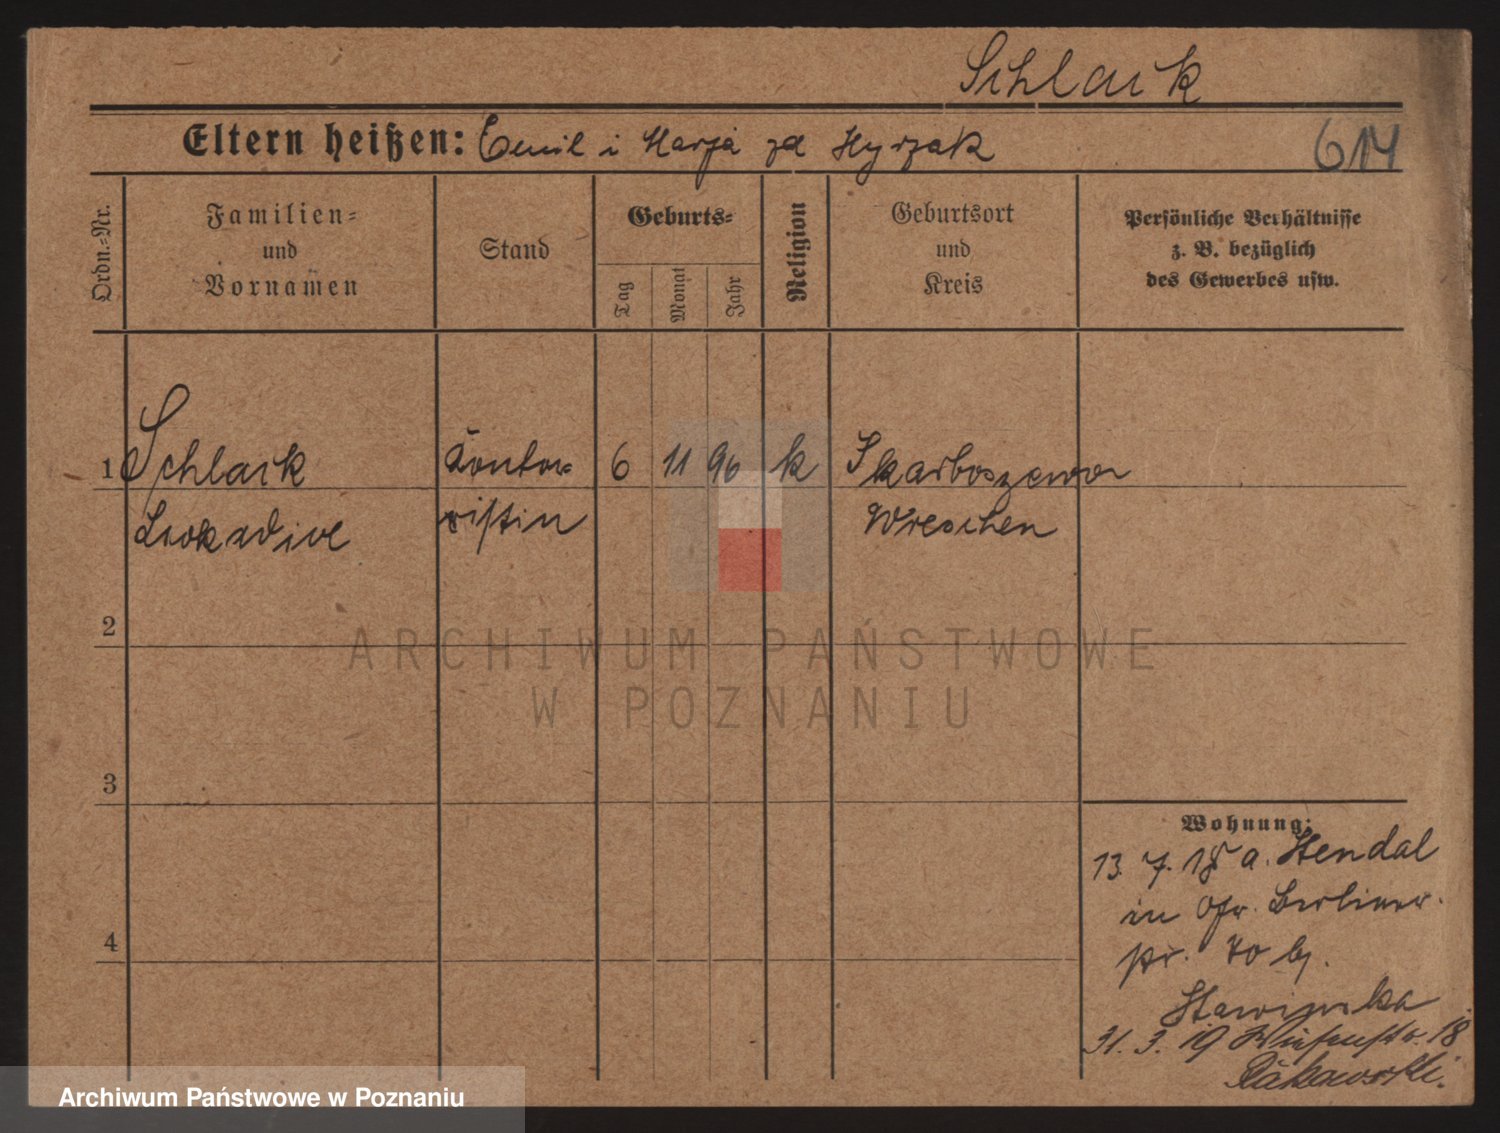 Schlaik
Eltern heißen: Emil i Marja zd Hyrzak
614
Ordn.=Nr.
Familien=
und
Vornamen
Stand
Geburts=
Tag
Monat
Jahr
Religion
Geburtsort
und
Kreis
Persönliche Verhältnisse
z. B. bezüglich
des Gewerbes usw.
1 Schlaik Kontor= 6 11 96 k Skarboszewo
Leokadie ristin Wreschen
2
3
4
Wohnung:
13. 7. 18 a. Stendal
in Ofr. Berliner
str. 10 bj.
Stawinska
31. 3. 19 Wiesenstr. 18
ARCHIWUM PAŃSTWOWE
W POZNANIU
Archiwum Państwowe w Poznaniu